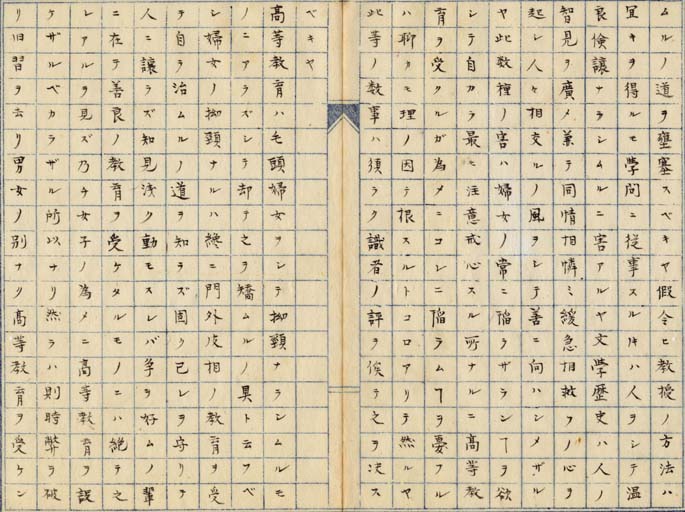 ムルノ道ヲ壅塞スベキヤ假令ヒ教授ノ方法ハ
宜キヲ得ルモ學問ニ從事スルトキハ人ヲシテ温
良儉讓ナラシムルニ害アルヤ文學歷史ハ人ノ
智見ヲ廣メ兼テ同情相憐ミ緩急相救フノ心ヲ
起シ人々相交ルノ風ヲシテ善ニ向ハシメザル
ヤ此数種ノ害ハ婦女ノ常ニ陥ラザランヿヲ欲
シテ自カラ最モ注意戒心スル所ナルニ高等教
育ヲ受クルガ為メニコレニ陥ラムヿヲ憂フル
ハ聊カモ理ノ因テ根スルトコロアリテ然ルヤ
此等ノ数事ハ須ラク識者ノ評ヲ俟テ之ヲ决ス
ベキヤ
高等教育ハ毛頭婦女ヲシテ拗頸ナラシムルモ
ノニアラズシテ却テ之ヲ矯ムルノ具ト云フベ
シ婦女ノ拗頸ナルハ終ニ門外皮相ノ教育ヲ受
テ自ラ治ムルノ道ヲ知ラズ固ク己レヲ守リテ
人ニ讓ラズ知見浅ク動モスレバ争ヲ好ムノ輩
ニ在テ善良ノ教育ヲ受ケタルモノニハ絶テ之
レアルヲ見ズ乃チ女子ノ為メニ高等教育ヲ設
ケザルベカラザル所以ナリ然ラハ則時弊ヲ破
リ旧習ヲ去リ男女ノ別ナク高等教育ヲ受ケシ